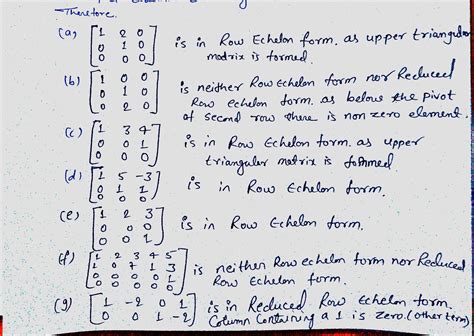 Therefore.
(a) [1 2 0
0 1 0
0 0 0] is in Row Echelon form. as upper triangular
matrix is formed.
(b) [1 0 0
0 1 0
0 2 0] is neither Row Echelon form nor Reduced
Row echelon form. as below the pivot
of second row there is non zero element.
(c) [1 3 4
0 0 1
0 0 0] is in Row Echelon form. as upper
triangular matrix is formed.
(d) [1 5 -3
0 1 1
0 0 0] is in Row Echelon form.
(e) [1 2 3
0 0 0
0 0 1] is in Row Echelon form.
(f) [1 2 3 4 5
1 0 7 1 3
0 0 0 0 1
0 0 0 0 0] is neither Row echelon form nor Reduced
Row Echelon form.
(g) [1 -2 0 1
0 0 1 -2] is in Reduced Row Echelon form.
Column Containing a 1 is zero. (other term)